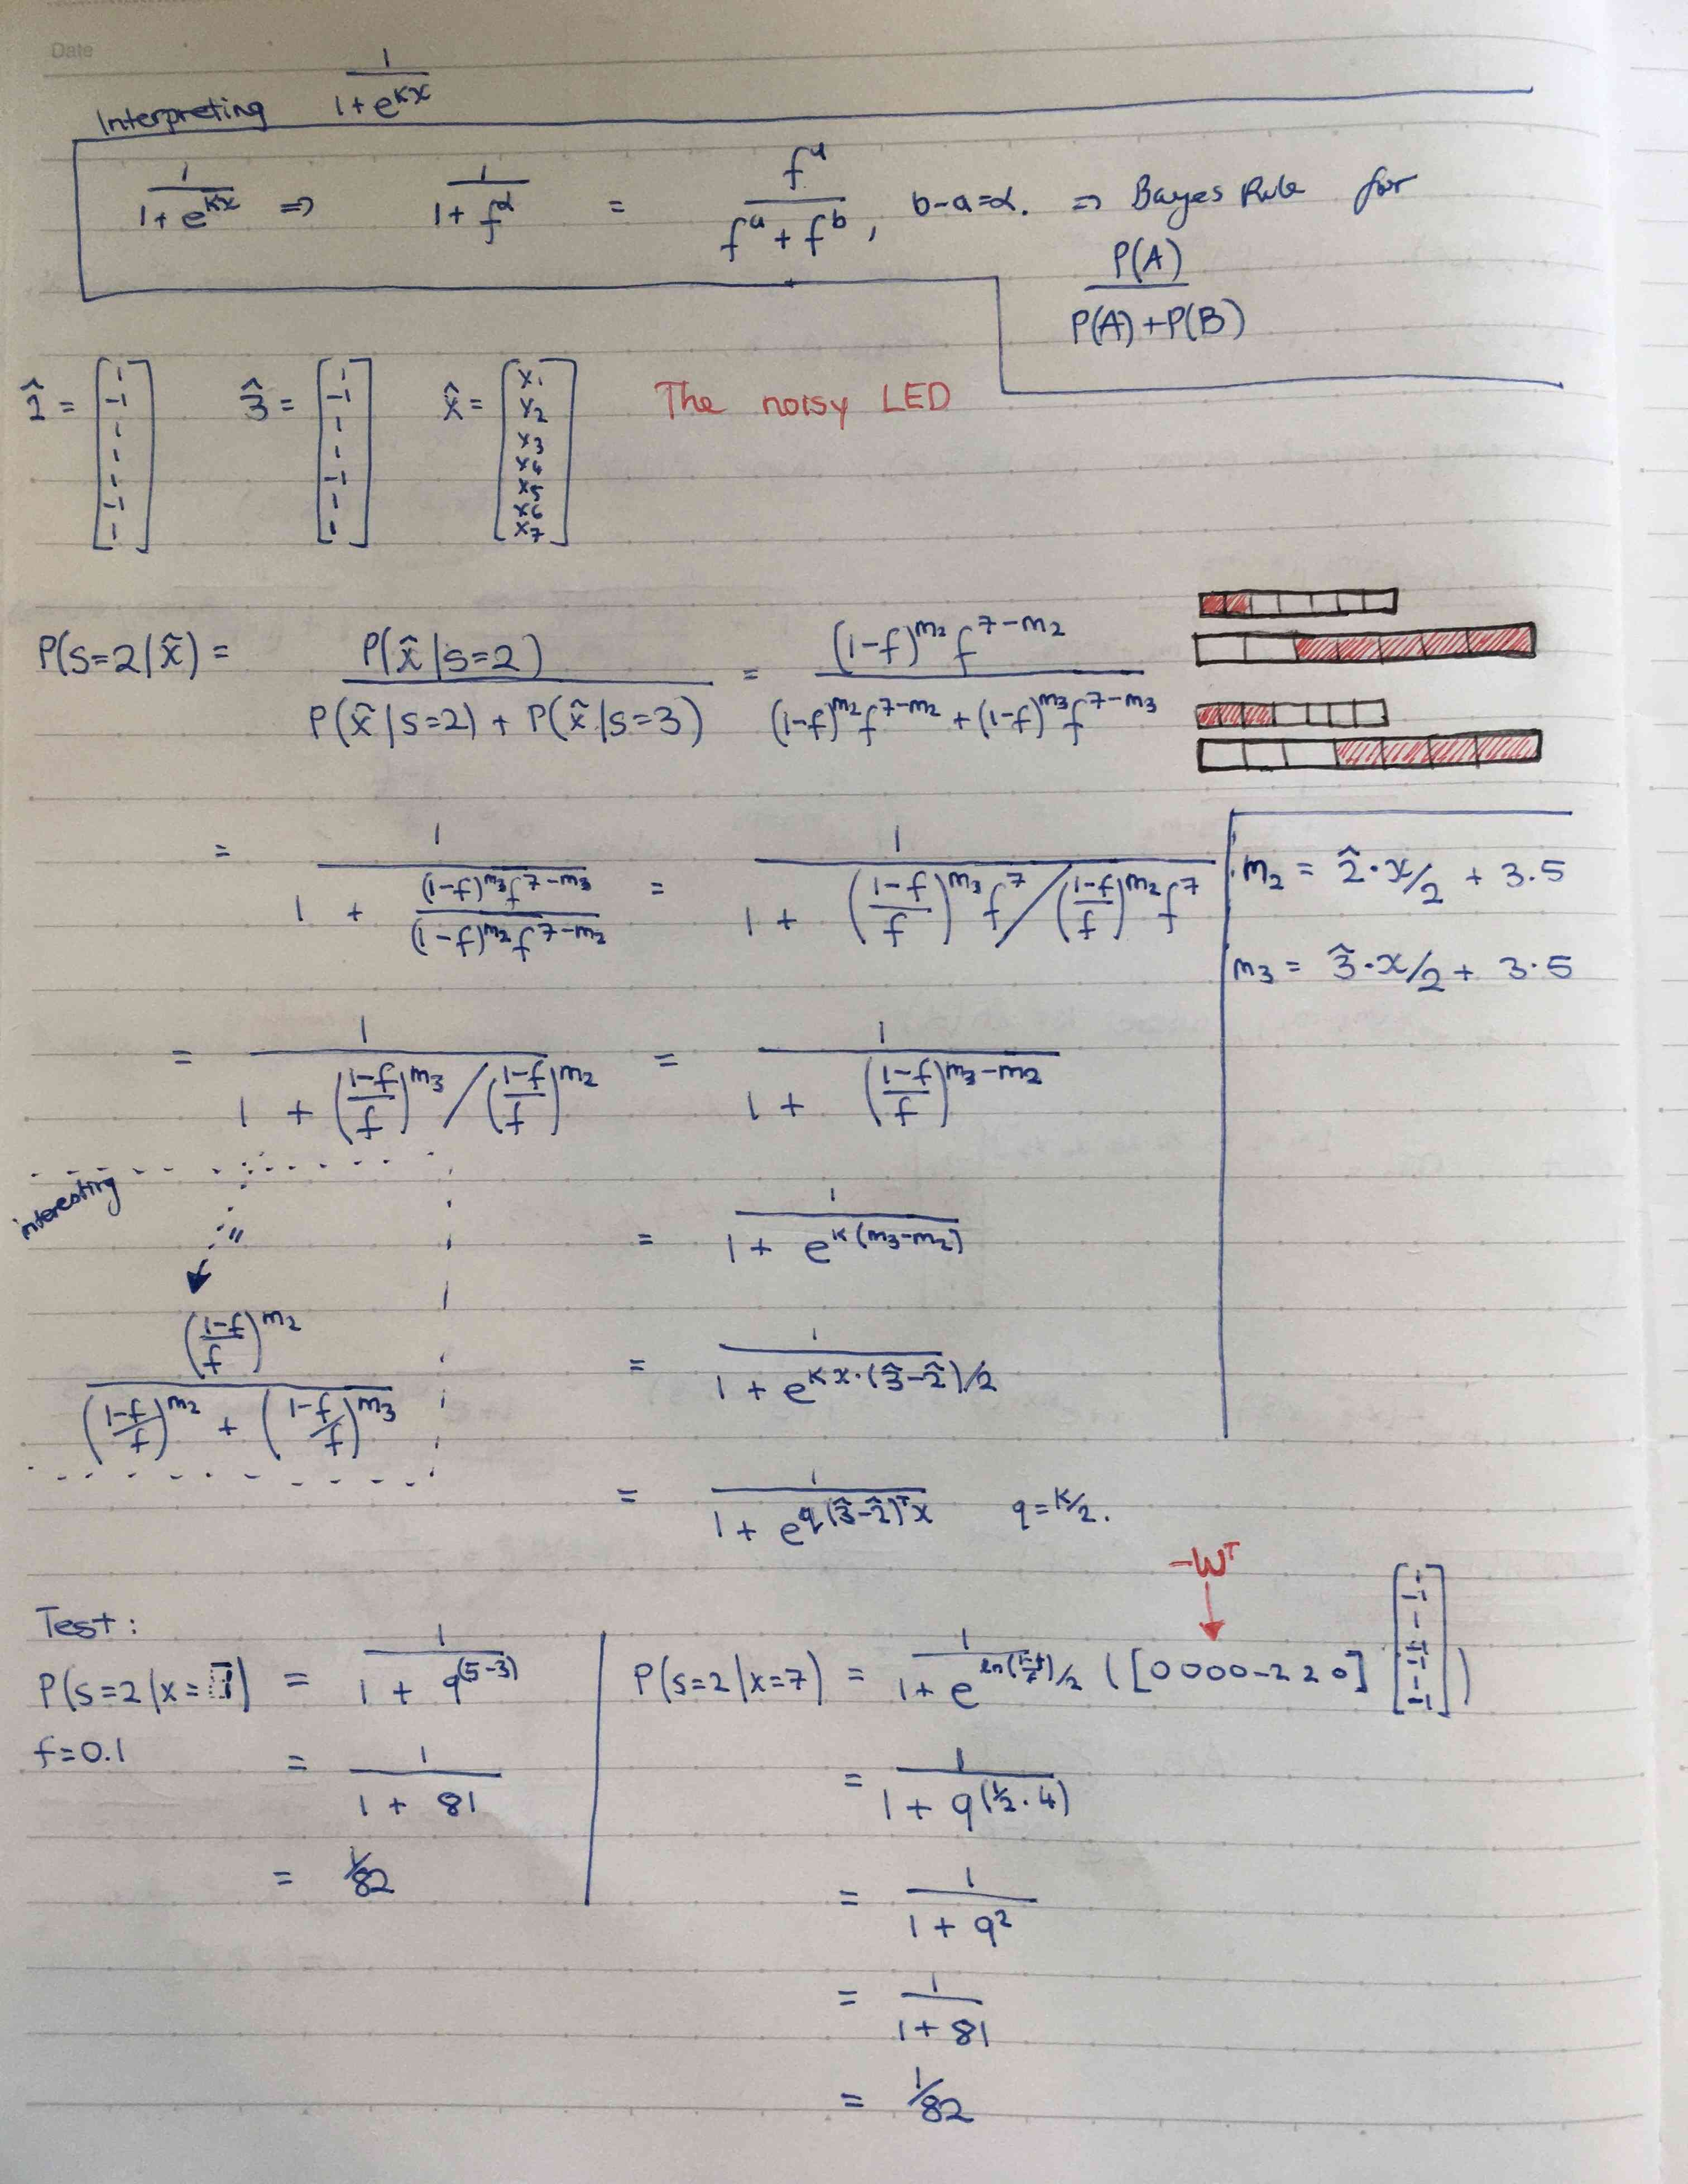 Date
Interpreting 1/(1+e^(kx))
1/(1+e^(kx)) => 1/(1+f^α) = f^a/(f^a+f^b), b-a=α. => Bayes Rule for
P(A)/(P(A)+P(B))
2̂ = [1 -1 1 1 1 -1 1] 3̂ = [1 -1 1 1 -1 1 1] x̂ = [x1 x2 x3 x4 x5 x6 x7] The noisy LED
P(s=2|x̂) = P(x̂|s=2)/(P(x̂|s=2) + P(x̂|s=3)) = (1-f)^m2 f^(7-m2)/((1-f)^m2 f^(7-m2) + (1-f)^m3 f^(7-m3))
= 1/(1 + (1-f)^m3 f^(7-m3)/((1-f)^m2 f^(7-m2))) = 1/(1 + ((1-f)/f)^m3 f^7 / ((1-f)/f)^m2 f^7)
m2 = 2̂·x/2 + 3.5
m3 = 3̂·x/2 + 3.5
= 1/(1 + ((1-f)/f)^m3 / ((1-f)/f)^m2) = 1/(1 + ((1-f)/f)^(m3-m2))
interesting
=
((1-f)/f)^m2/(((1-f)/f)^m2 + ((1-f)/f)^m3)
= 1/(1 + e^(k(m3-m2)))
= 1/(1 + e^(k x·(3̂-2̂)/2))
= 1/(1 + e^(q(3̂-2̂)^T x)) q = k/2.
Test:
P(s=2|x= ) = 1/(1 + 9^(5-3))
f=0.1
= 1/(1 + 81)
= 1/82
-W^T
P(s=2|x=7) = 1/(1 + e^(ln((1-f)/f)/2 ([0 0 0 0 -2 2 0] [1 -1 1 -1 -1 1 -1])))
= 1/(1 + 9^(1/2 · 4))
= 1/(1 + 9^2)
= 1/(1 + 81)
= 1/82